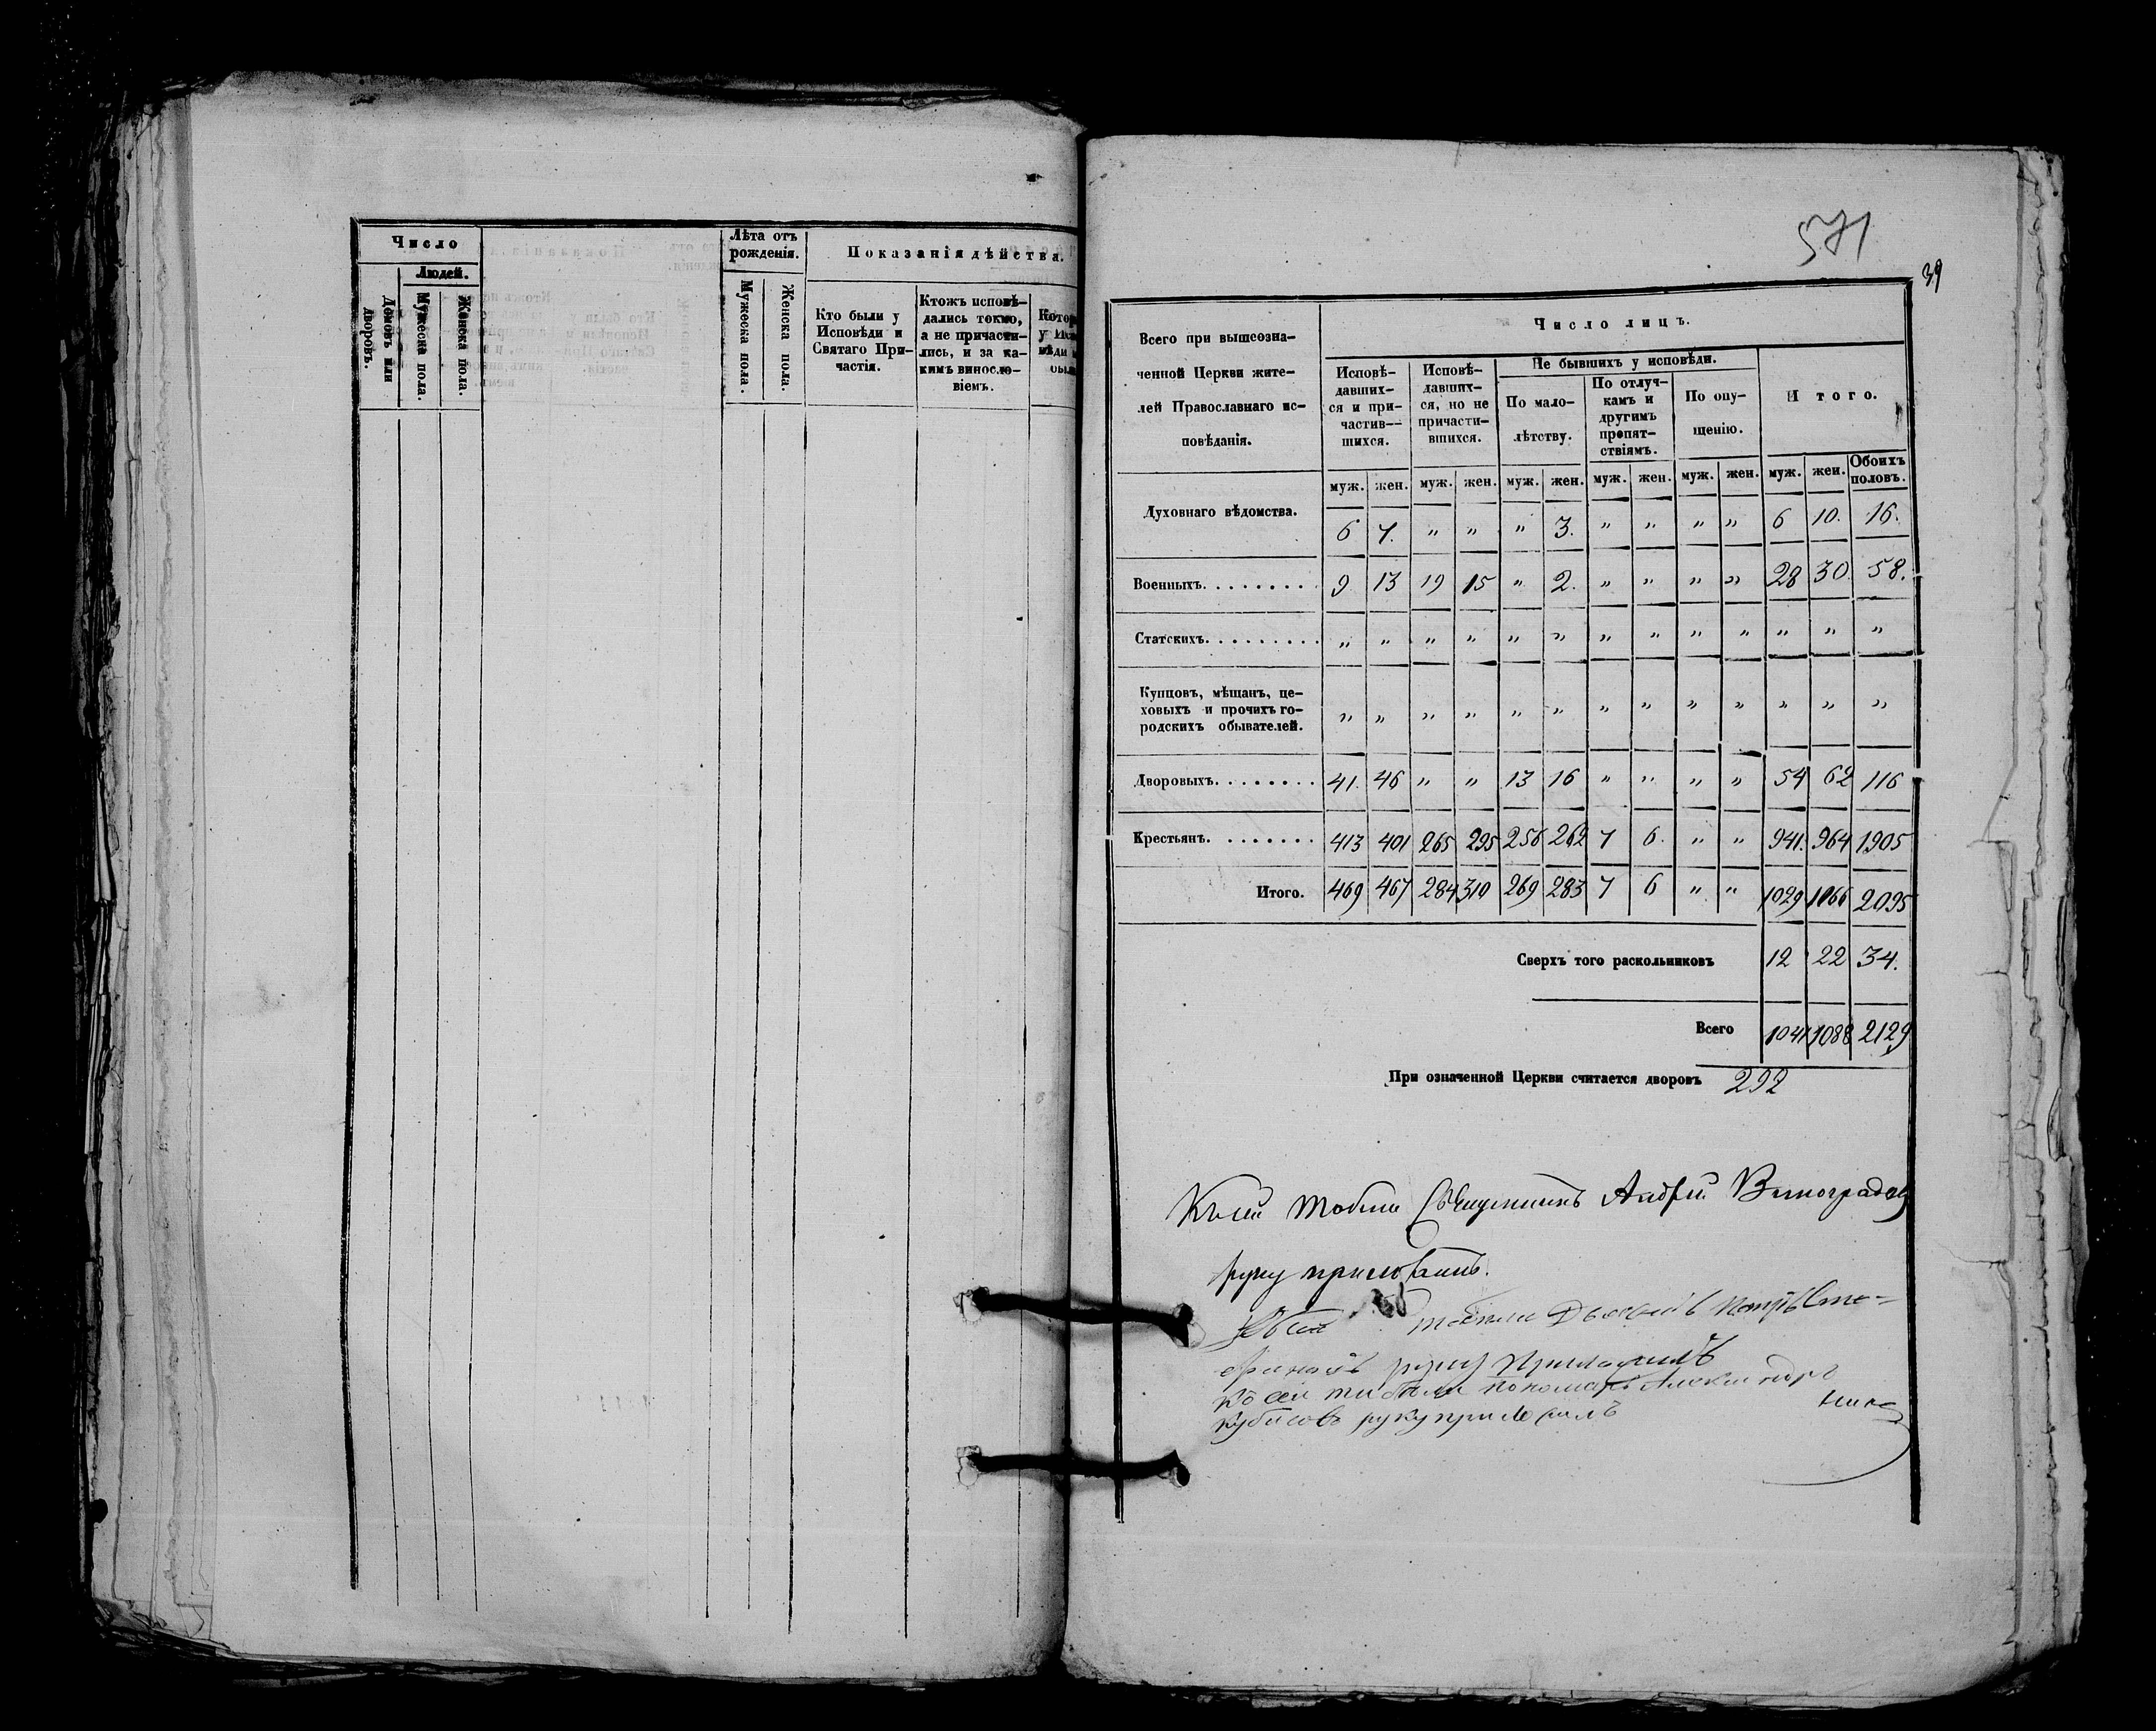 Число
Людей.
Домовъ или дворовъ.
Мужеска пола.
Женска пола.
Лѣта отъ
рожденія.
Мужеска пола.
Женска пола.
Показанія дѣйства.
Кто были у
Исповѣди и
Святаго При-
частія.
Ктожъ исповѣ-
дались токмо,
а не причасти-
лись, и за ка-
кимъ винослo-
віемъ.
571
39
Всего при вышеозна-
ченной Церкви жите-
лей Православнаго ис-
повѣданія.
Число лицъ.
Исповѣ-
давших-
ся и при-
частив-
шихся.
Исповѣ-
давших-
ся, но не
причасти-
вшихся.
Не бывшихъ у исповѣди.
По мало-
лѣтству.
По отлуч-
камъ и
другимъ
препят-
ствіямъ.
По опу-
щенію.
Итого.
муж. жен. муж. жен. муж. жен. муж. жен. муж. жен. муж. жен. Обоихъ половъ.
Духовнаго вѣдомства. 6 7. " " " 3. " " " " 6 10. 16.
Военныхъ. 9 13 19 15 " 2. " " " " 28 30. 58.
Статскихъ. " " " " " " " " " " " " "
Купцовъ, мѣщанъ, це-
ховыхъ и прочихъ го-
родскихъ обывателей. " " " " " " " " " " " " "
Дворовыхъ. 41. 46 " " 13 16 " " " " 54 62 116
Крестьянъ. 413 401 265 295 256 262 7 6. " " 941. 964 1905
Итого. 469 467 284 310 269 283 7 6 " " 1029 1066 2095
Сверхъ того раскольниковъ 12 22 34.
Всего 1041 1088 2129
При означенной Церкви считается дворовъ 292
Къ сей Священникъ Андрей Виноградовъ
руку приложилъ.
руку приложилъ
Къ сей пономарь Александръ
руку приложилъ